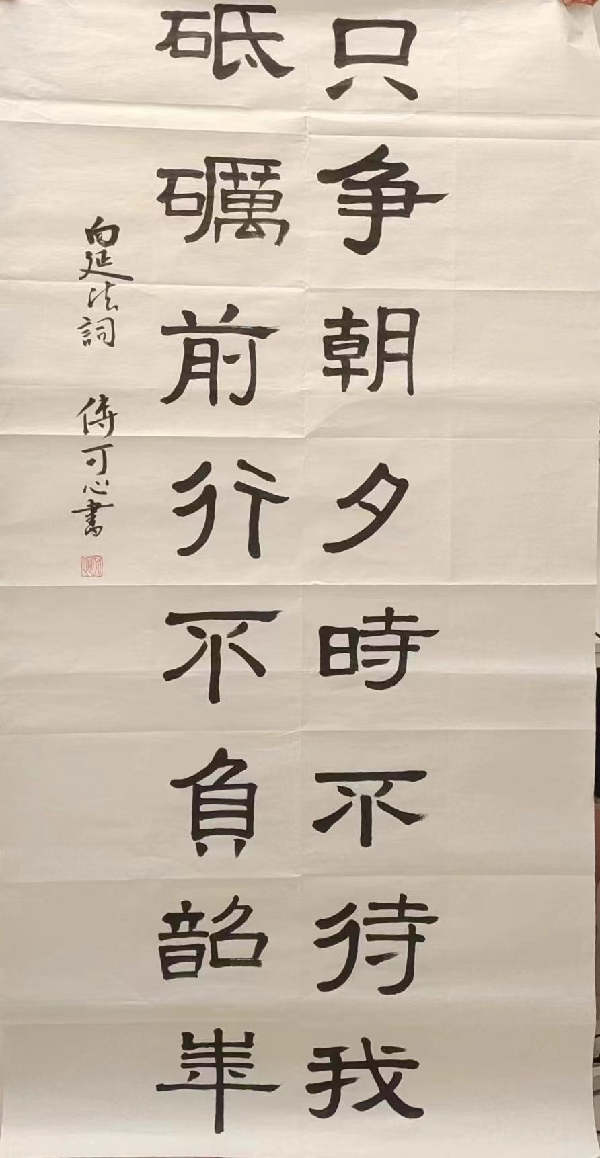 只争朝夕時不待我
砥礪前行不負韶華
向延法詞 傅可心書